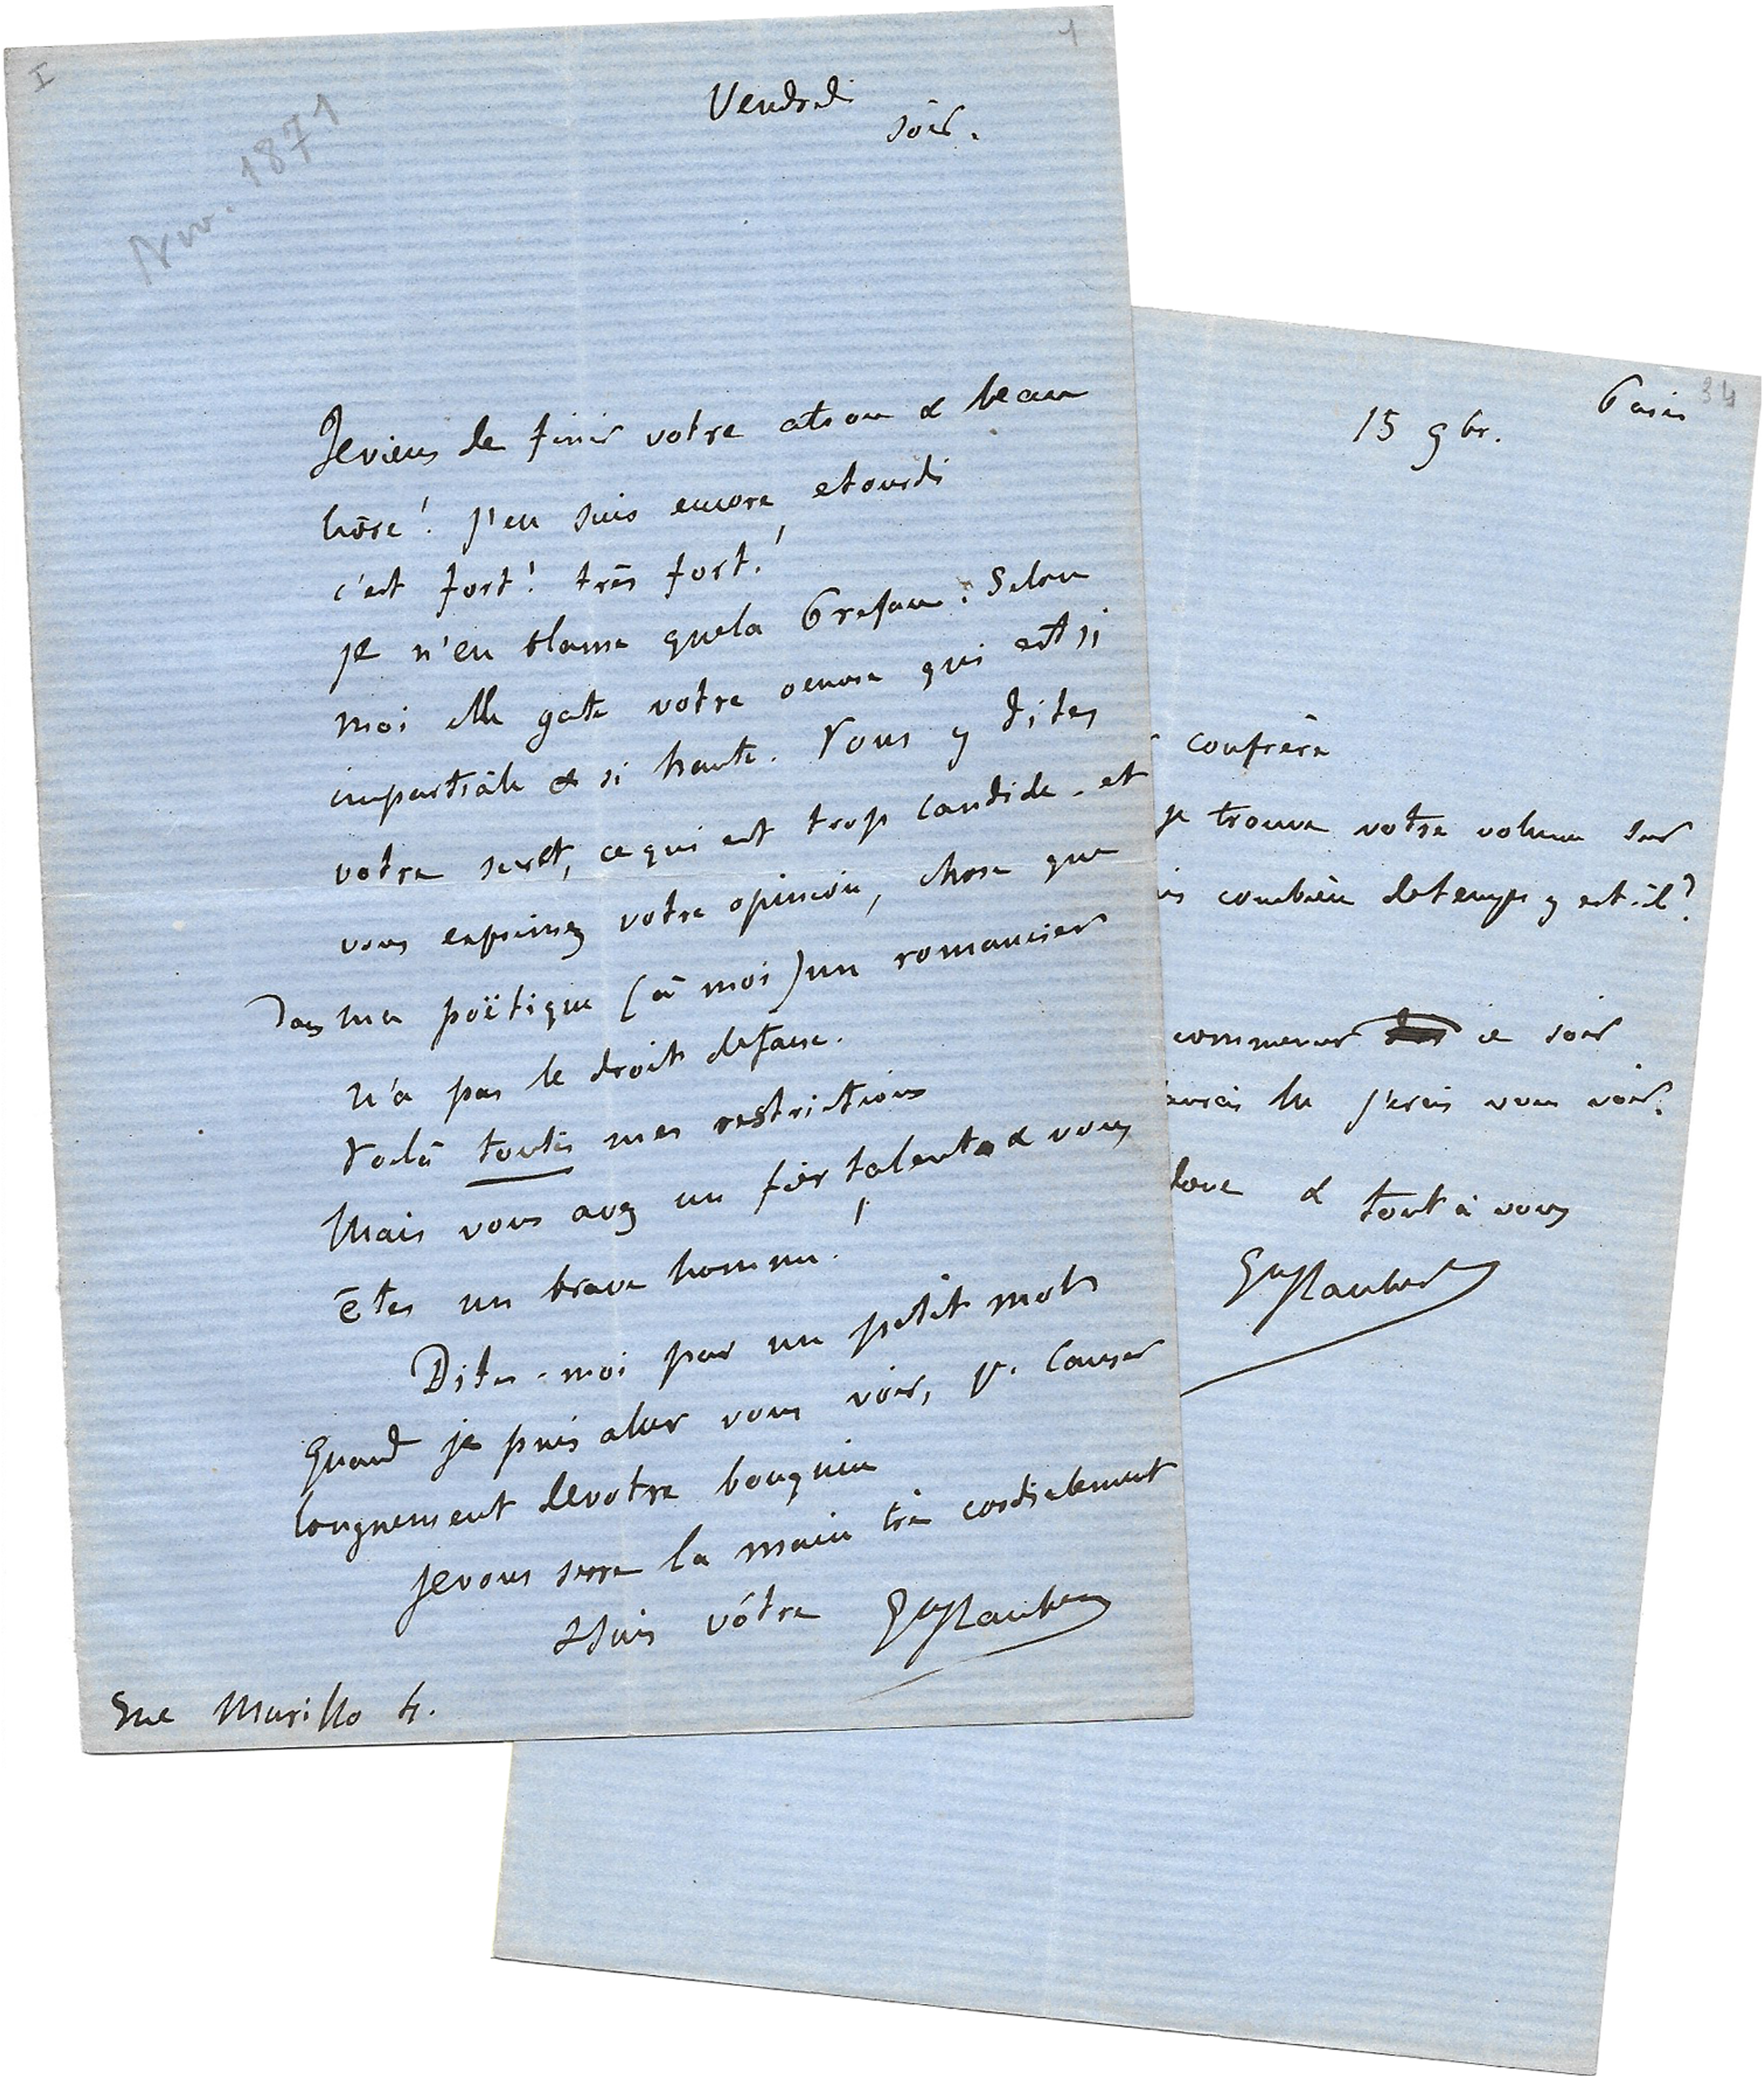 I
1
Nov. 1871
Vendredi
soir.
Je viens de finir votre atroce & beau
livre! j'en suis encore etourdi
c'est fort! très fort!
je n'en blame que la Preface. Selon
moi elle gate votre oeuvre qui est si
impartiale & si haute. Vous y dites
votre secret, ce qui est trop candide. et
vous exprimez votre opinion, chose que
Dans ma poëtique (à moi) un romancier
n'a pas le droit de faire.
Voilà toutes mes restrictions
Mais vous avez un fier talent & vous
êtes un brave homme!
Dites-moi par un petit mot
quand je puis aller vous voir, pr. causer
longuement de votre bouquin
je vous serre la main très cordialement
& suis vôtre GFlaubert
Rue Murillo 4.
34
Paris
15 9br.
confrère
je trouve votre volume sur
is combien de temps y est-il?
commencer ce soir
aurai lu j'irai vous voir.
donc & tout à vous
GFlaubert